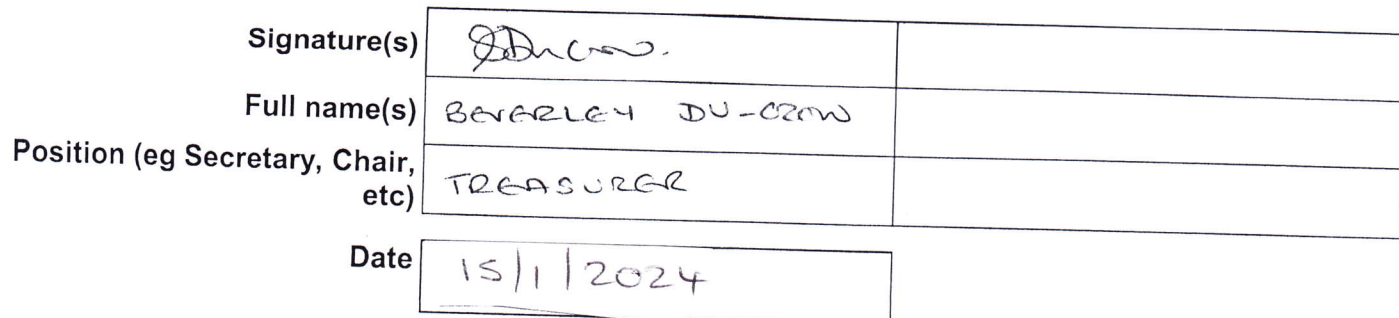 Signature(s)
Full name(s) BEVERLEY
Position (eg Secretary, Chair,
etc) TREASURER
Date 15/1/2024